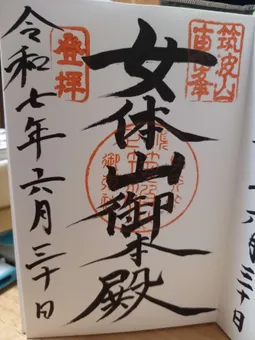 筑波山
東峯
女体山御本殿
登拝
令和七年六月三十日
月三十日